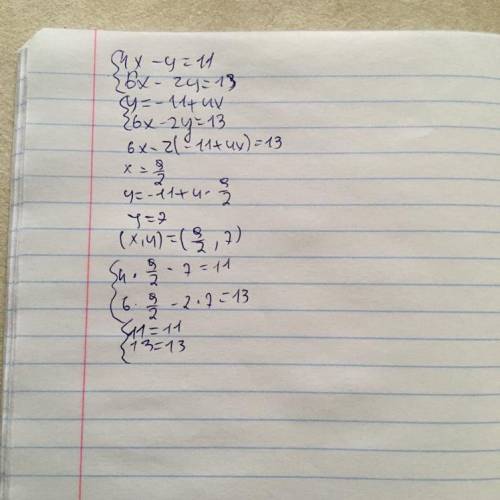 {4x - y = 11
{6x - 2y = 13
{y = -11 + 4x
{6x - 2y = 13
6x - 2(-11 + 4x) = 13
x = 9/2
y = -11 + 4 · 9/2
y = 7
(x, y) = (9/2, 7)
{4 · 9/2 - 7 = 11
{6 · 9/2 - 2 · 7 = 13
{11 = 11
{13 = 13